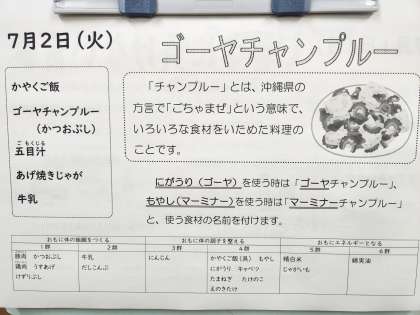 7月2日(火)
ゴーヤチャンプルー
かやくご飯
ゴーヤチャンプルー
(かつおぶし)
五目汁
ごもくじる
あげ焼きじゃが
牛乳
「チャンプルー」とは、沖縄県の
方言で「ごちゃまぜ」という意味で、
いろいろな食材をいためた料理の
ことです。
にがうり(ゴーヤ)を使う時は「ゴーヤチャンプルー」、
もやし(マーミナー)を使う時は「マーミナーチャンプルー」
と、使う食材の名前を付けます。
おもに体の組織をつくる おもに体の調子を整える おもにエネルギーとなる
1群 2群 3群 4群 5群 6群
豚肉 かつおぶし 牛乳 にんじん かやくご飯(具) もやし 精白米 綿実油
鶏肉 うすあげ だしこんぶ にがうり キャベツ じゃがいも
けずりぶし たまねぎ たけのこ
えのきたけ